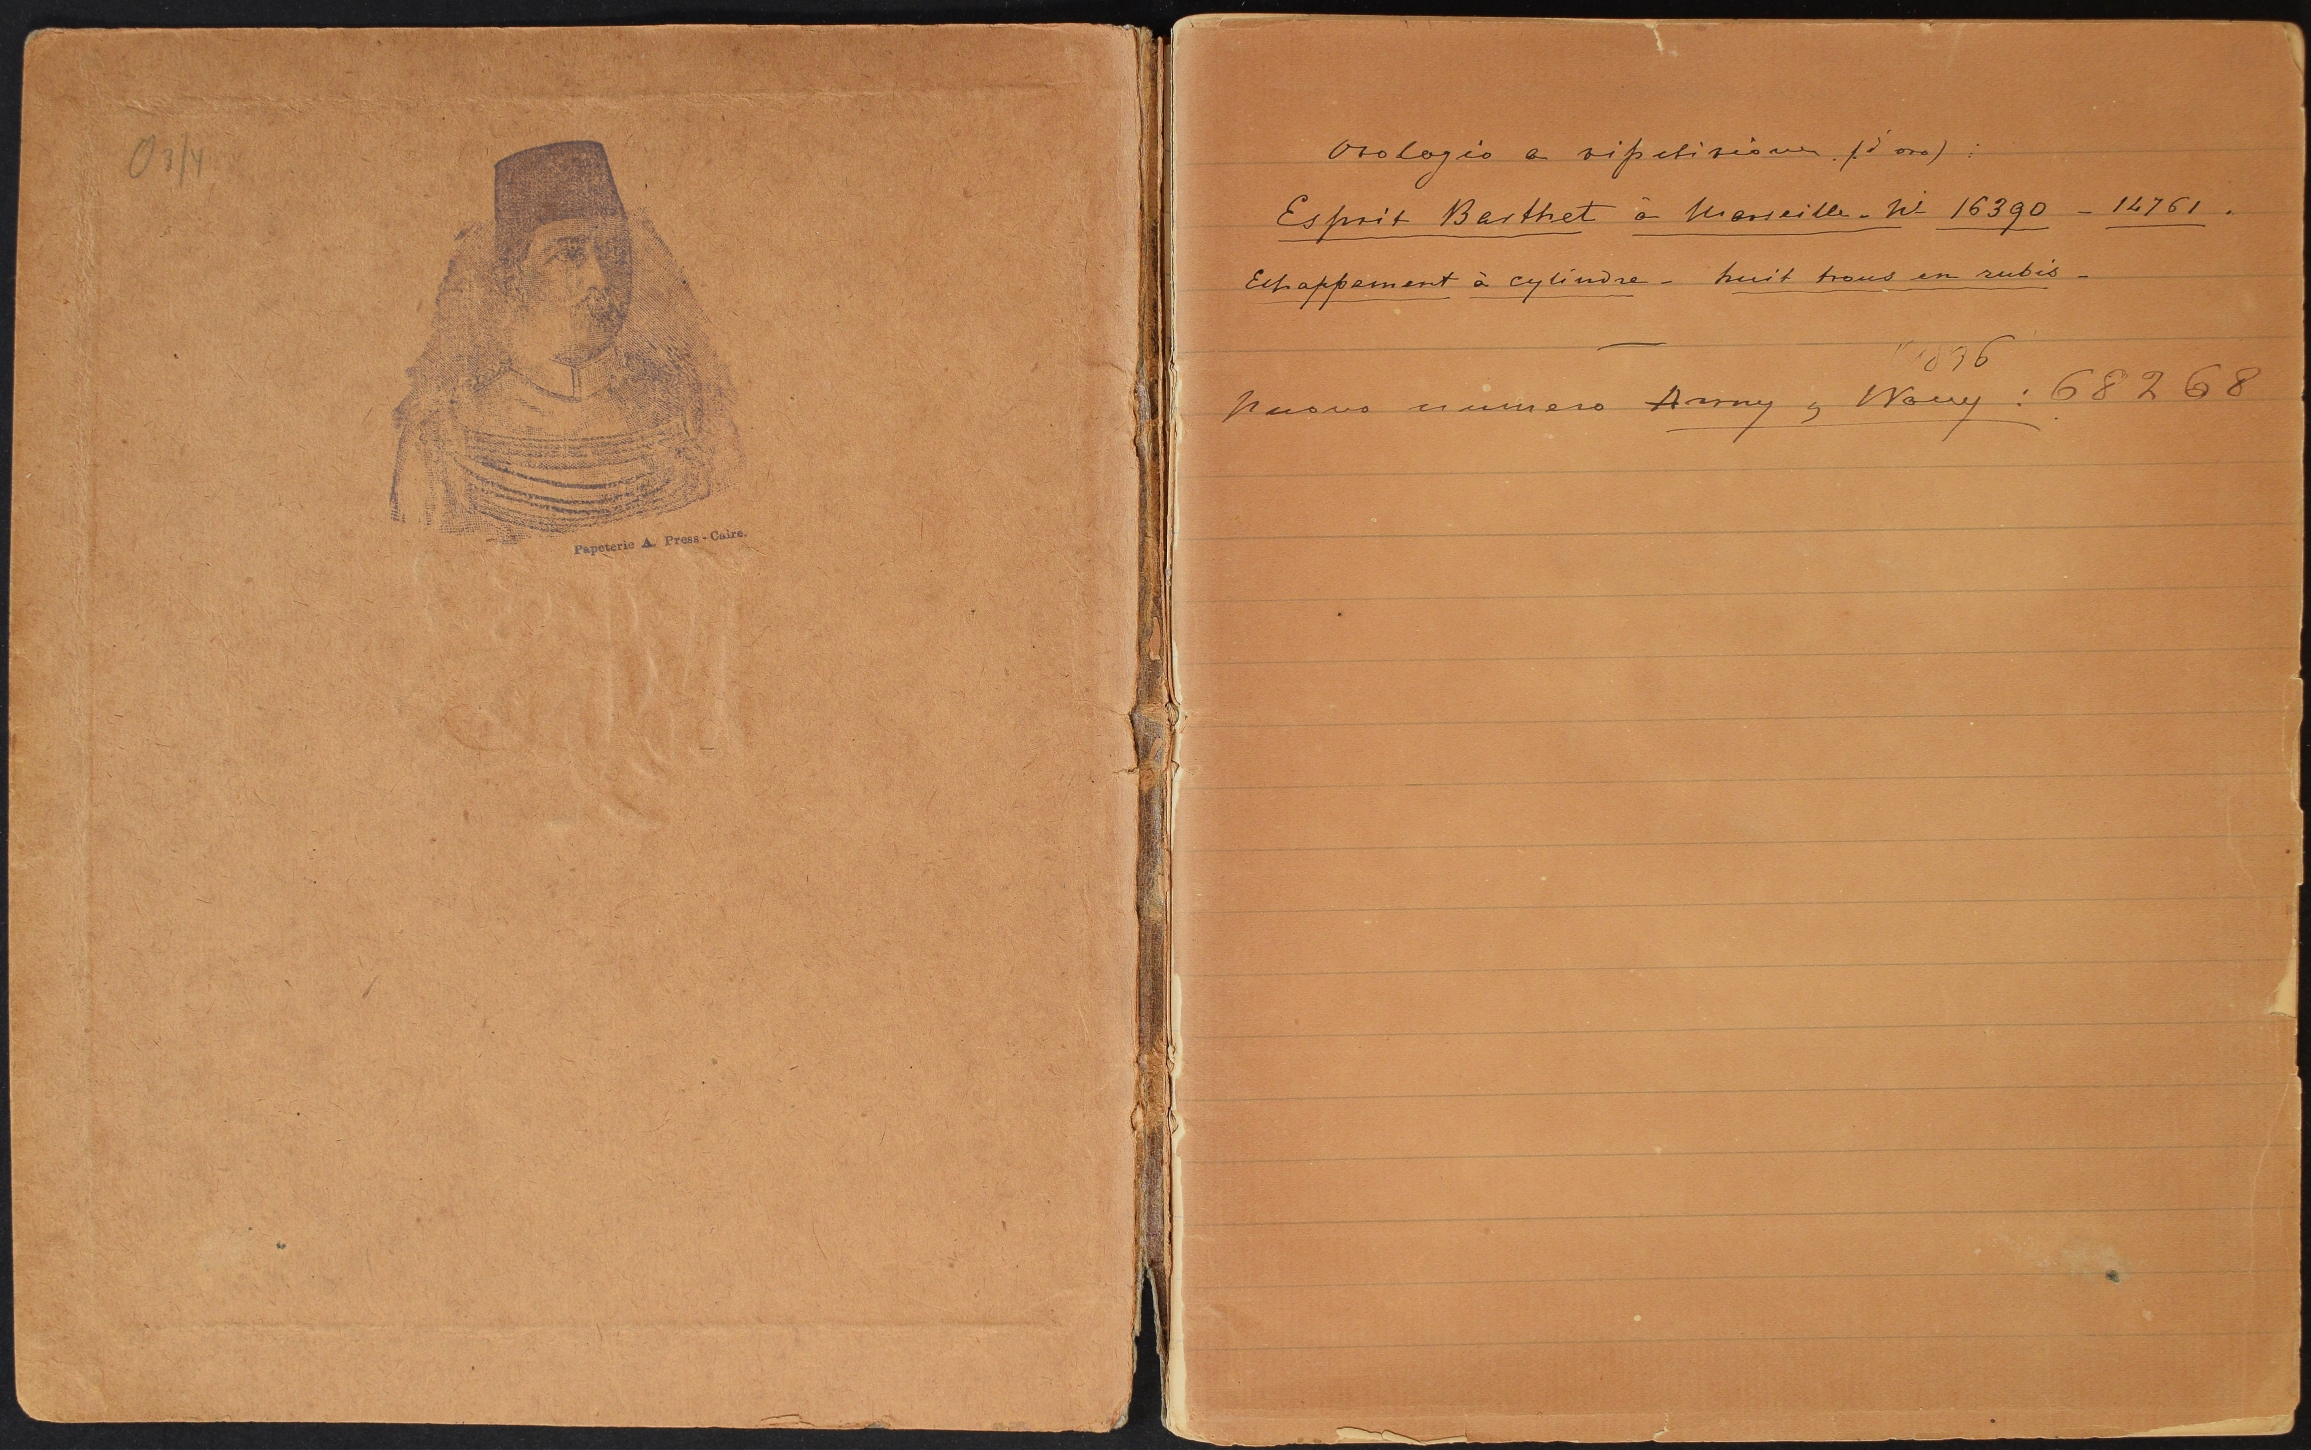 O 3/4
Papeterie A. Press-Caire.
Orologio a ripetizione (d'oro) :
Esprit Barthet à Marseille - Nº 16390 - 14761.
Echappement à cylindre - huit trous en rubis -
1896
nuovo numero Army & Navy : 68268